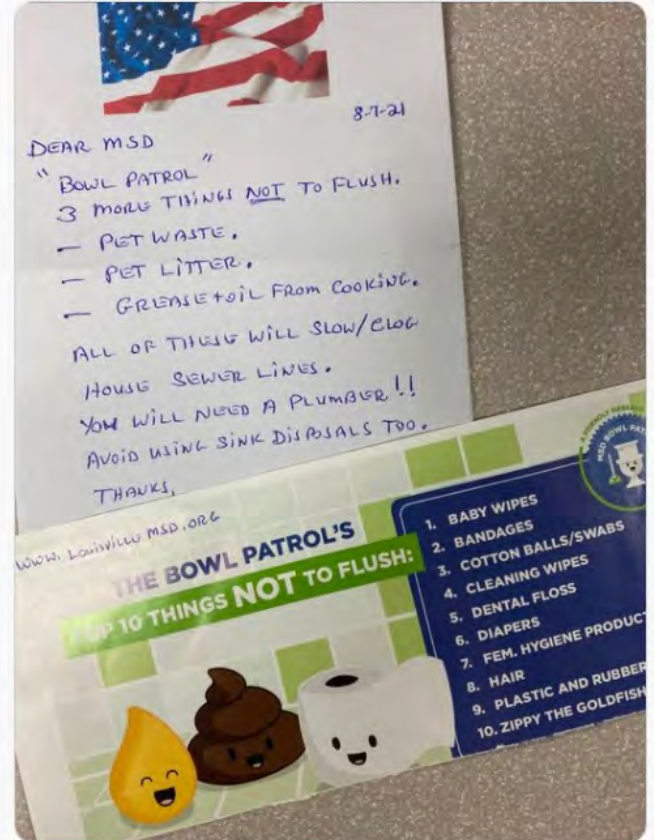 8-7-21
DEAR MSD
"BOWL PATROL"
3 MORE THINGS NOT TO FLUSH.
— PET WASTE.
— PET LITTER.
— GREASE + OIL FROM COOKING.
ALL OF THESE WILL SLOW/CLOG
HOUSE SEWER LINES.
YOU WILL NEED A PLUMBER!!
AVOID USING SINK DISPOSALS TOO.
THANKS,
WWW. LOUISVILLE MSD.ORG
THE BOWL PATROL'S
TOP 10 THINGS NOT TO FLUSH:
1. BABY WIPES
2. BANDAGES
3. COTTON BALLS/SWABS
4. CLEANING WIPES
5. DENTAL FLOSS
6. DIAPERS
7. FEM. HYGIENE PRODUCT
8. HAIR
9. PLASTIC AND RUBBER
10. ZIPPY THE GOLDFISH
MSD BOWL PAT